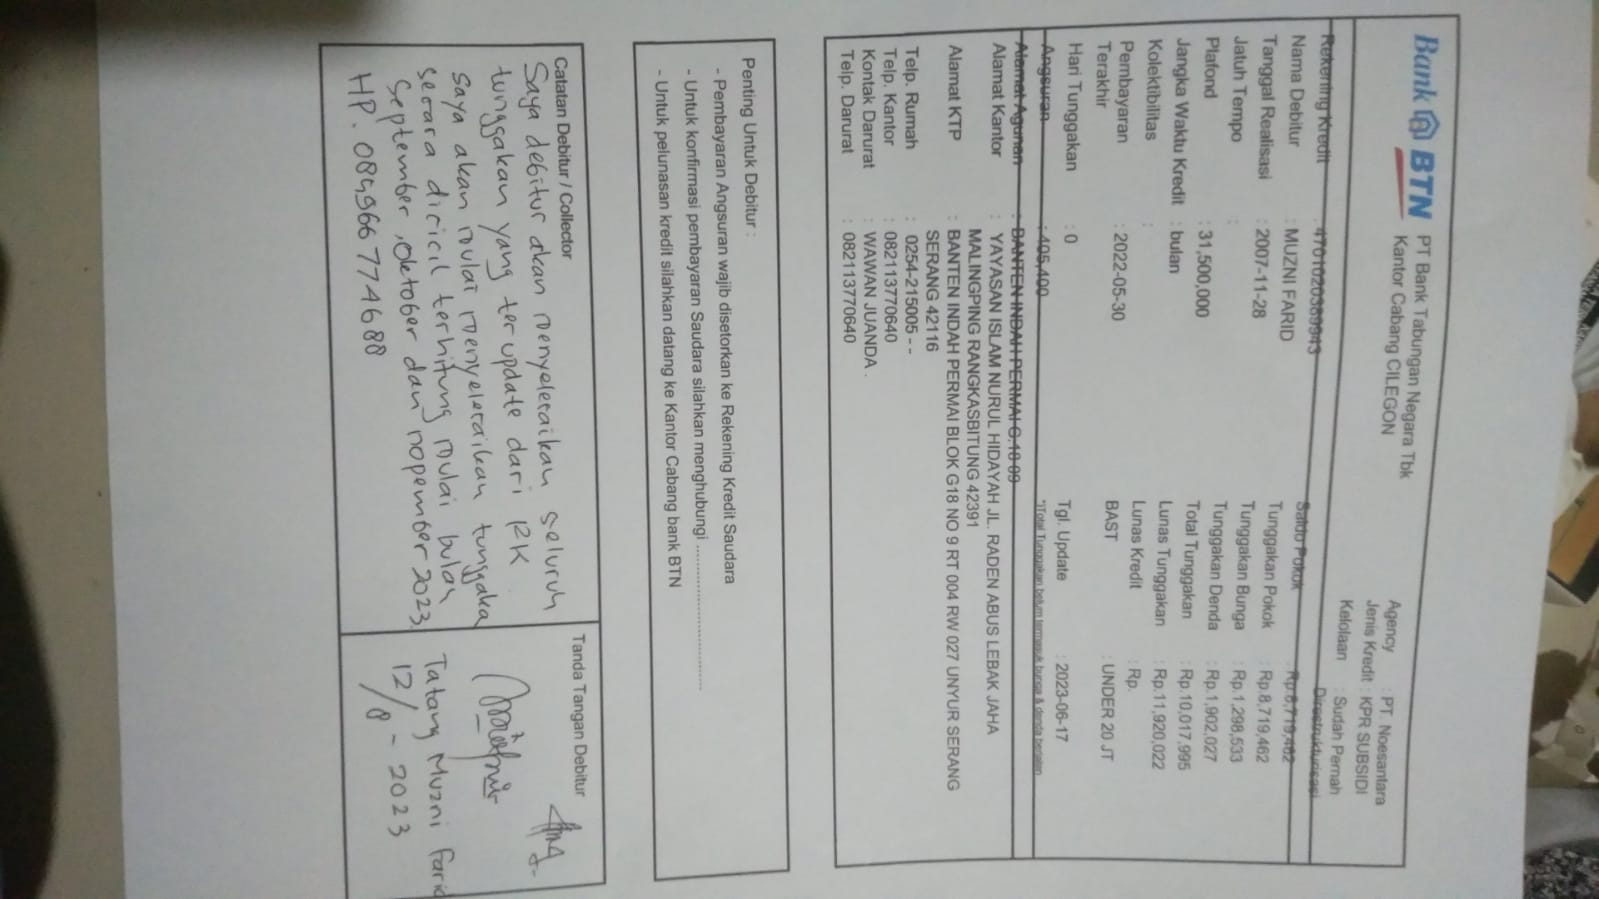 Bank BTN
PT Bank Tabungan Negara Tbk
Kantor Cabang CILEGON
Agency : PT. Noesantara
Jenis Kredit : KPR SUBSIDI
Kelolaan : Sudah Pernah
Direstrukturisasi
Rekening Kredit : 4701020389943
Nama Debitur : MUZNI FARID
Tanggal Realisasi : 2007-11-28
Jatuh Tempo :
Plafond : 31,500,000
Jangka Waktu Kredit : bulan
Kolektibilitas :
Pembayaran : 2022-05-30
Terakhir
Hari Tunggakan : 0
Angsuran : 405,400
Saldo Pokok : Rp.8,719,462
Tunggakan Pokok : Rp.8,719,462
Tunggakan Bunga : Rp.1,298,533
Tunggakan Denda : Rp.1,902,027
Total Tunggakan : Rp.10,017,995
Lunas Tunggakan : Rp.11,920,022
Lunas Kredit : Rp.
BAST : UNDER 20 JT
Tgl. Update : 2023-06-17
*)Total Tunggakan belum termasuk bunga & denda berjalan
Alamat Agunan : BANTEN INDAH PERMAI G.18 09
Alamat Kantor : YAYASAN ISLAM NURUL HIDAYAH JL. RADEN ABUS LEBAK JAHA
MALINGPING RANGKASBITUNG 42391
Alamat KTP : BANTEN INDAH PERMAI BLOK G18 NO 9 RT 004 RW 027 UNYUR SERANG
SERANG 42116
Telp. Rumah : 0254-215005 - -
Telp. Kantor : 082113770640
Kontak Darurat : WAWAN JUANDA .
Telp. Darurat : 082113770640
Penting Untuk Debitur :
- Pembayaran Angsuran wajib disetorkan ke Rekening Kredit Saudara
- Untuk konfirmasi pembayaran Saudara silahkan menghubungi ..............................
- Untuk pelunasan kredit silahkan datang ke Kantor Cabang bank BTN
Catatan Debitur / Collector
Saya debitur akan menyelesaikan seluruh
tunggakan yang terupdate dari RK
saya akan mulai menyelesaikan tunggaka
secara dicicil terhitung mulai bulan
September, oktober dan nopember 2023.
HP. 085966774688
Tanda Tangan Debitur
Tatang Muzni Farid
12/8 - 2023